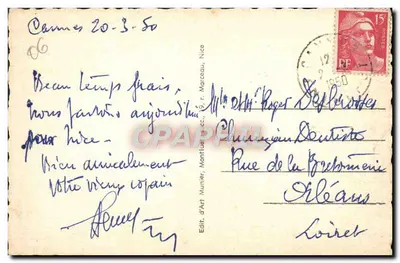 Cannes 20-3-50
06
Beau temps frais,
nous partons aujourd'hui
pour Nice.
Bien amicalement
Votre vieux copain
Mr et Mme Roger
Chirurgien Dentiste
Rue de la Bretonnerie
Orléans
Loiret
15F
RF
1950
Edit. d'Art Munier, r. Marceau, Nice
CPARAMA